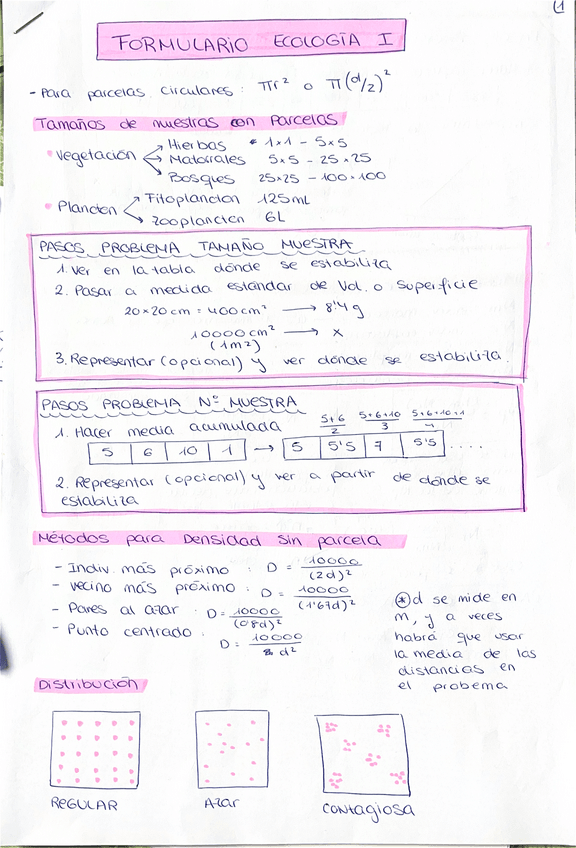 (1
FORMULARIO ECOLOGÍA I
- Para parcelas circulares: πr² o π(d/2)²
Tamaños de muestras con Parcelas
• Vegetación → Hierbas • 1x1 - 5x5
→ Matorrales 5x5 - 25x25
→ Bosques 25x25 - 100x100
• Plancton → Fitoplancton 125mL
→ Zooplancton 6L
PASOS PROBLEMA TAMAÑO MUESTRA
1. Ver en la tabla dónde se estabiliza
2. Pasar a medida estándar de Vol. o Superficie
20x20cm = 400cm² → 8'4g
10000cm² → x
(1m²)
3. Representar (opcional) y ver dónde se estabiliza.
PASOS PROBLEMA Nº MUESTRA
1. Hacer media acumulada 5+6/2 5+6+10/3 5+6+10+1/4
5 6 10 1 → 5 5'5 7 5'5 ....
2. Representar (opcional) y ver a partir de dónde se
estabiliza
Métodos para Densidad Sin parcela
- Indiv. más próximo: D = 10000/(2d)²
- Vecino más próximo: D = 10000/(1'67d)²
- Pares al azar: D = 10000/(0'8d)²
- Punto centrado: D = 10000/d²
* d se mide en
m, y a veces
habrá que usar
la media de las
distancias en
el probema
Distribución
REGULAR Azar Contagiosa